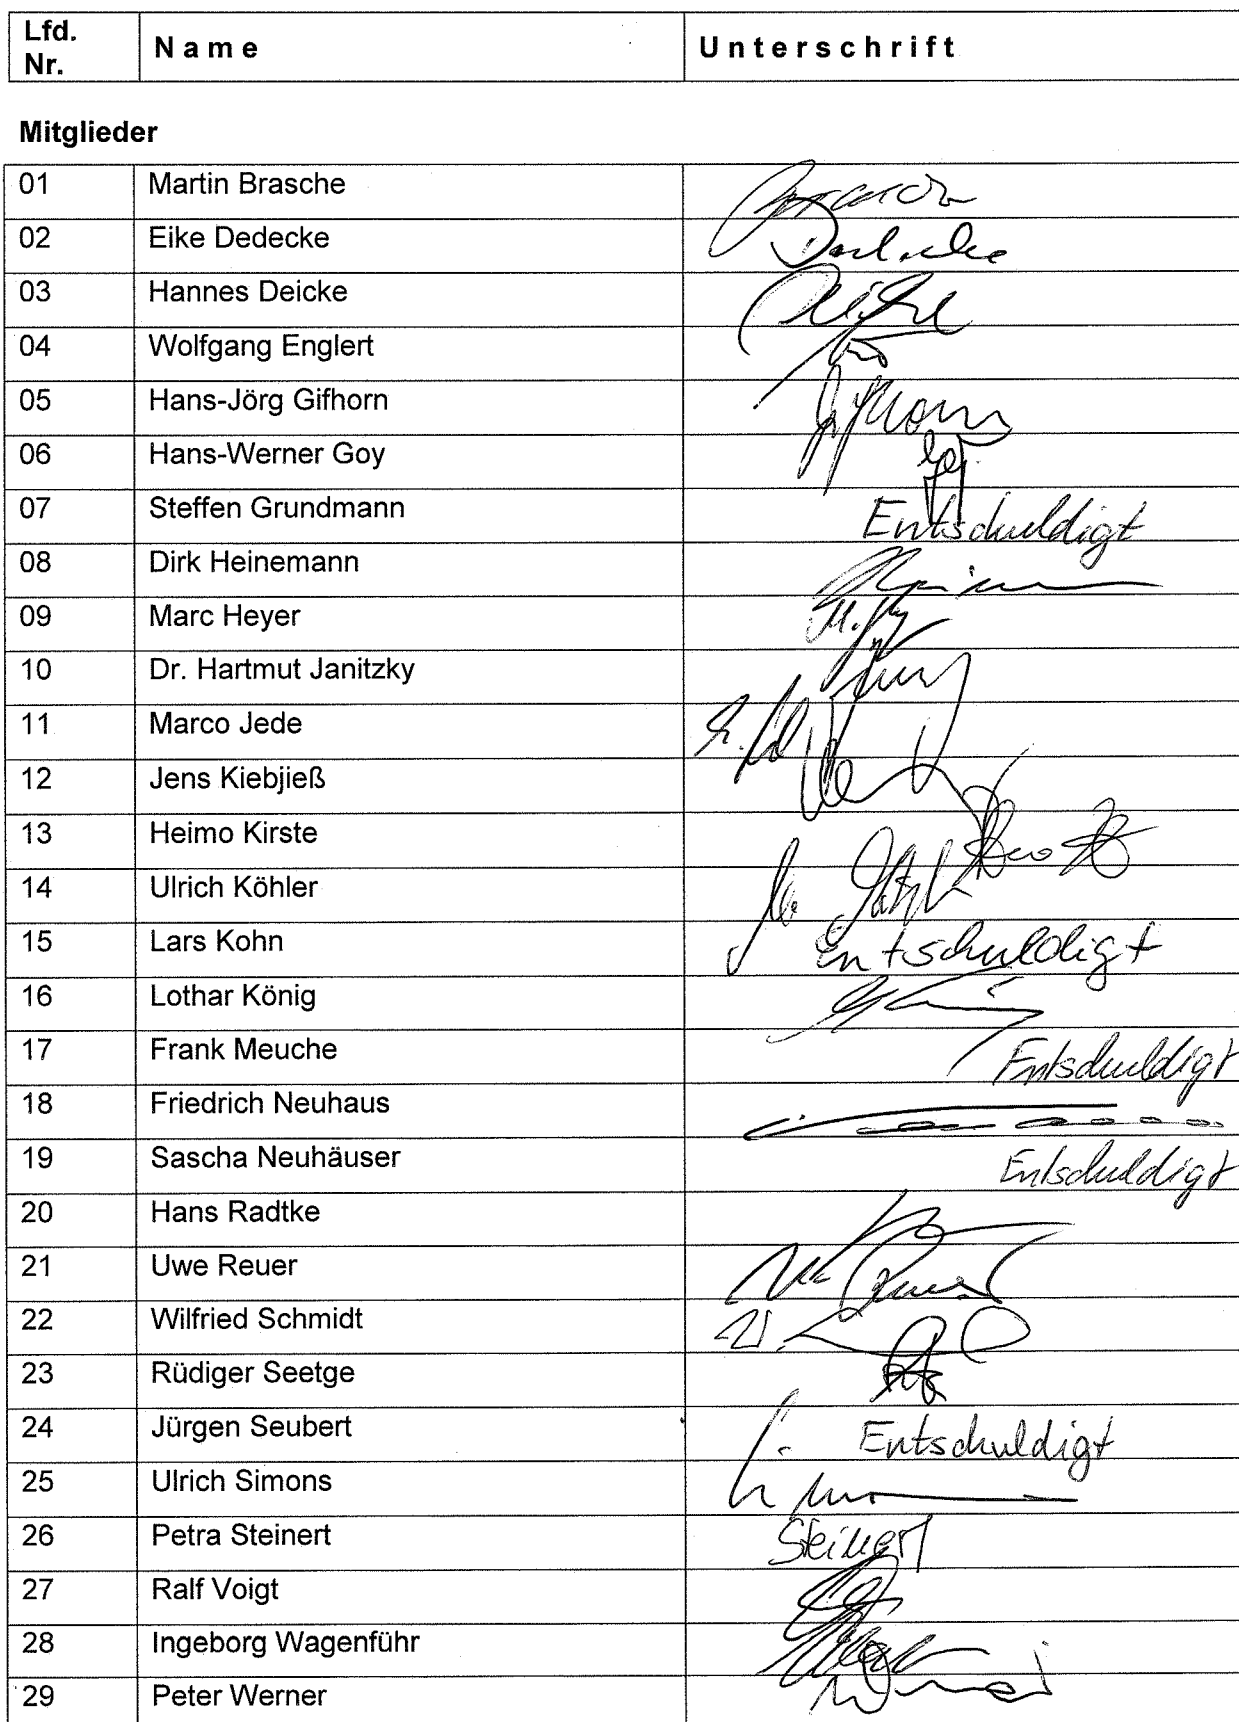 Lfd. Nr. Name Unterschrift
Mitglieder
01 Martin Brasche
02 Eike Dedecke Dedecke
03 Hannes Deicke
04 Wolfgang Englert
05 Hans-Jörg Gifhorn Gifhorn
06 Hans-Werner Goy
07 Steffen Grundmann Entschuldigt
08 Dirk Heinemann
09 Marc Heyer
10 Dr. Hartmut Janitzky
11 Marco Jede
12 Jens Kiebjieß
13 Heimo Kirste
14 Ulrich Köhler
15 Lars Kohn Entschuldigt
16 Lothar König
17 Frank Meuche Entschuldigt
18 Friedrich Neuhaus
19 Sascha Neuhäuser Entschuldigt
20 Hans Radtke
21 Uwe Reuer
22 Wilfried Schmidt
23 Rüdiger Seetge
24 Jürgen Seubert Entschuldigt
25 Ulrich Simons
26 Petra Steinert Steinert
27 Ralf Voigt
28 Ingeborg Wagenführ
29 Peter Werner